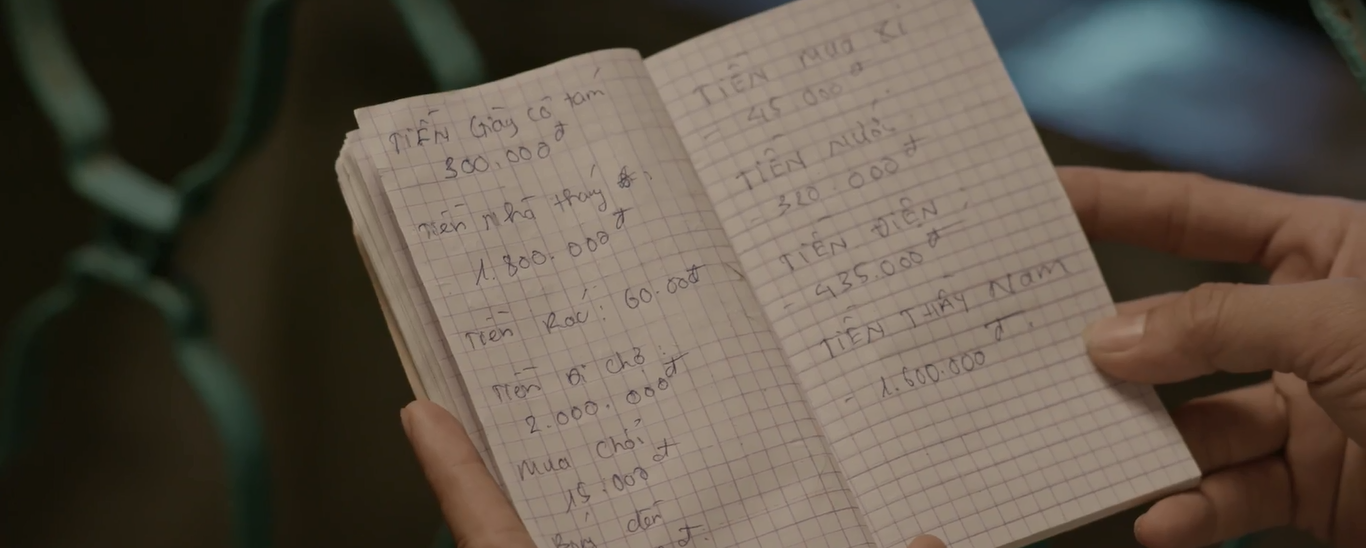 TIỀN Giày cô tám
300.000đ
Tiền nhà tháng
1.800.000đ
Tiền Rác: 60.000đ
Tiền đi chợ:
2.000.000đ
Mua chổi
15.000đ
đèn
đ.
TIỀN MUA
- 45.000đ
TIỀN NƯỚC
- 320.000đ
TIỀN ĐIỆN:
- 435.000đ
TIỀN THẦY NAM
- 1.600.000đ.